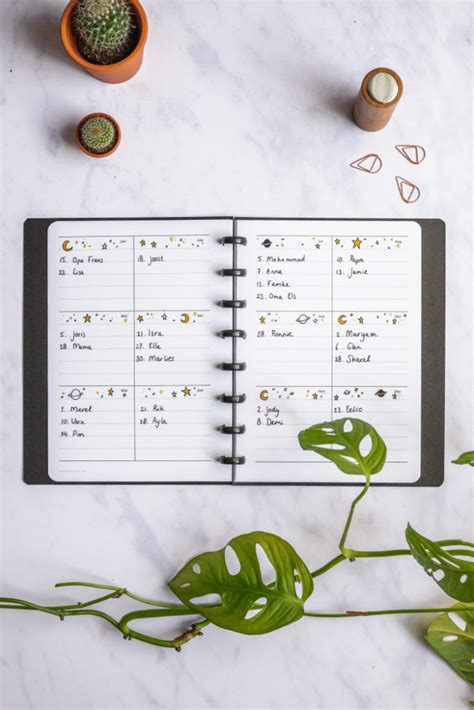 15. Opa Frans
23. Lisa
18. Joost
5. Joris
28. Mama
21. Isra
27. Ella
30. Marlies
1. Merel
10. Vera
Pim
21. Rik
28. Ayla
5. Mohammad
7. Anna
12. Femke
23. Oma Els
10. Papa
13. Jamie
28. Ronnie
2. Maryam
6. Glen
28. Sharel
2. Jody
8. Demi
13. Eelco